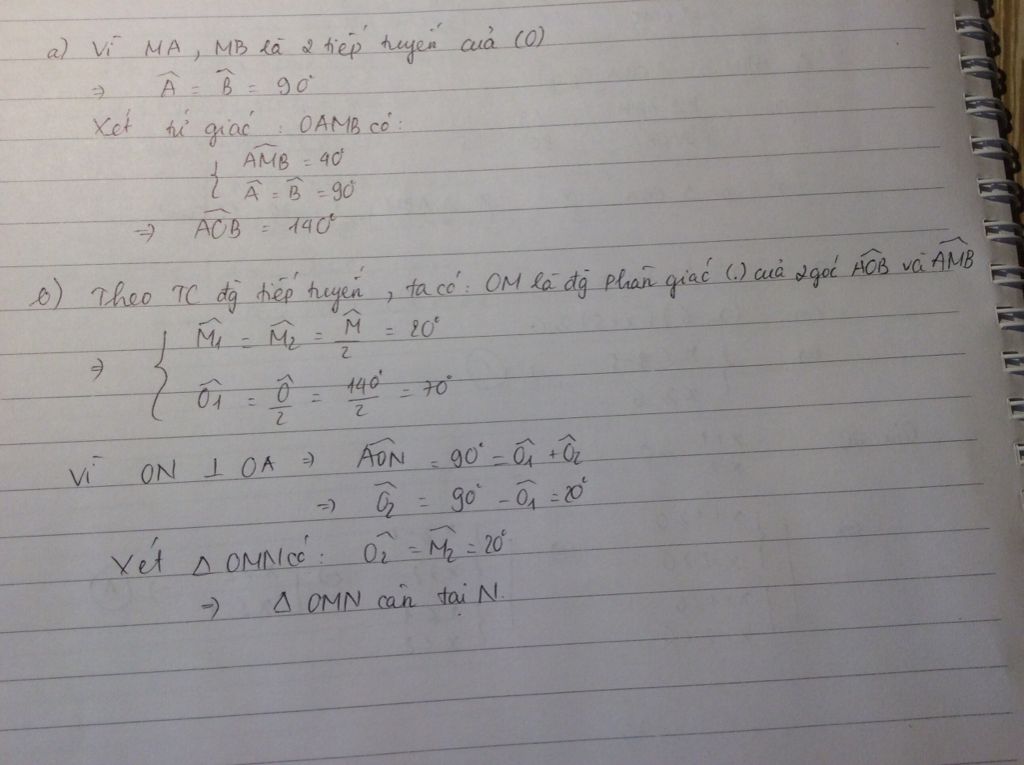 a) Vì MA, MB là 2 tiếp tuyến của (O)
⇒ Â = B̂ = 90°
Xét tứ giác : OAMB có:
{ ÂMB = 40°
Â = B̂ = 90°
⇒ ÂOB = 140°
b) Theo TC đg tiếp tuyến, ta có: OM là đg phân giác (.) của 2 góc ÂOB và ÂMB
⇒ { M̂1 = M̂2 = M̂/2 = 20°
Ô1 = Ô/2 = 140°/2 = 70°
Vì ON ⊥ OA ⇒ ÂON = 90° = Ô1 + Ô2
⇒ Ô2 = 90° - Ô1 = 20°
Xét Δ OMN có: Ô2 = M̂2 = 20°
⇒ Δ OMN cân tại N.